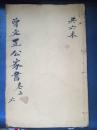 共六本
曾文正公家書卷六
六